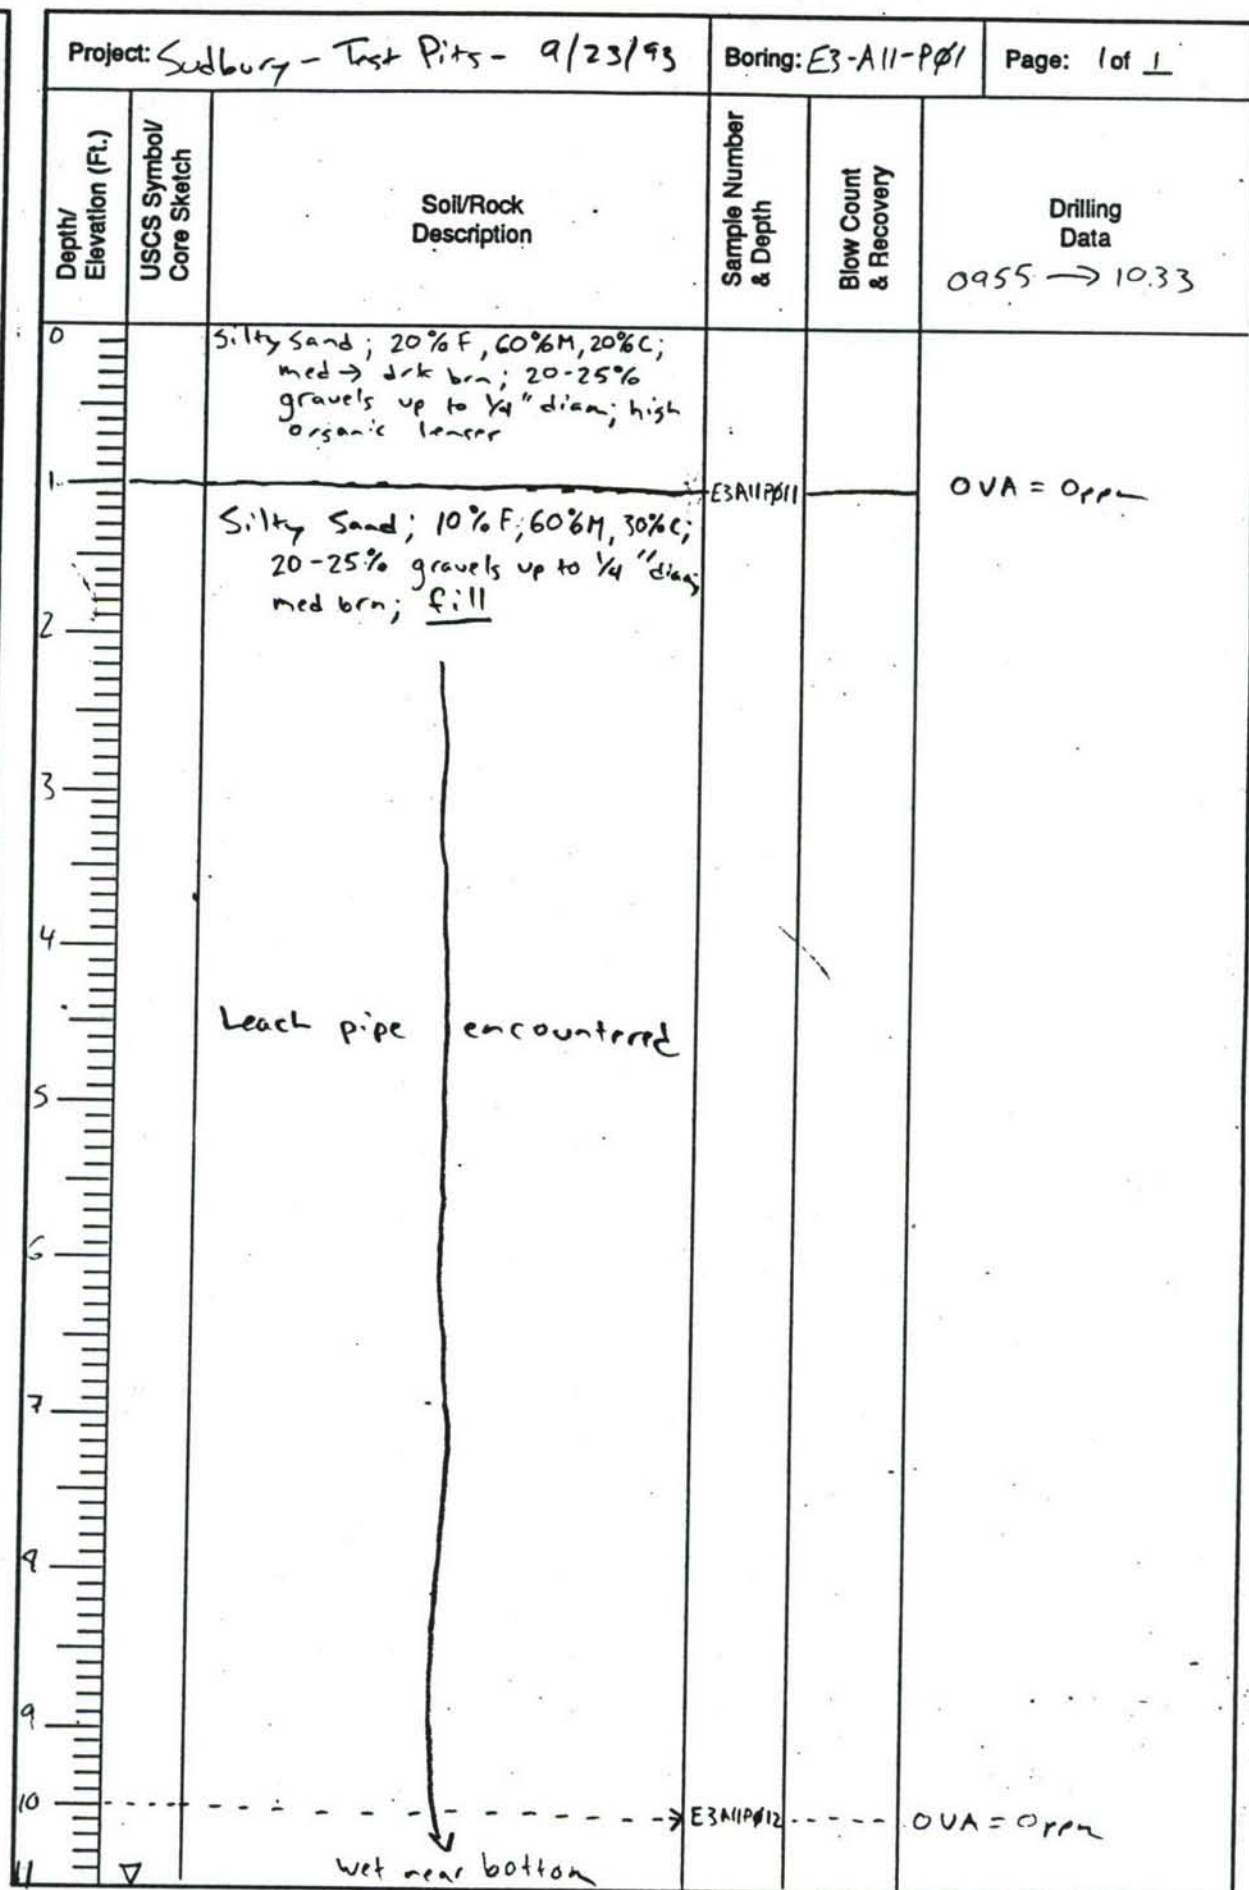 Project: Sudbury - Test Pits - 9/23/93
Boring: E3-A11-PØ1
Page: 1 of 1
Depth/
Elevation (Ft.)
USCS Symbol/
Core Sketch
Soil/Rock
Description
Sample Number
& Depth
Blow Count
& Recovery
Drilling
Data
0955 → 10.33
0
Silty Sand; 20% F, 60% M, 20% C;
med → drk brn; 20-25%
gravels up to 1/4" diam; high
organic lenses
1
E3A11PØ11
OVA = 0ppm
Silty Sand; 10% F, 60% M, 30% C;
20-25% gravels up to 1/4" diam;
med brn; fill
2
3
4
Leach pipe encountered
5
6
7
9
9
10
E3A11PØ12
OVA = 0ppm
wet near bottom
11